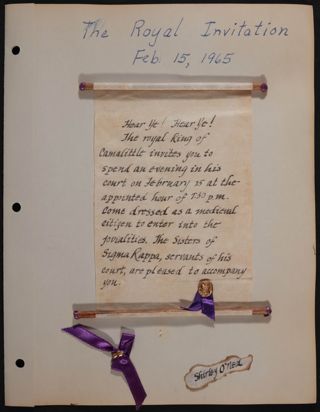 The Royal Invitation
Feb. 15, 1965
Hear Ye! Hear Ye!
The royal King of
Camalittle invites you to
spend an evening in his
court on February 15 at the
appointed hour of 7:30 p.m.
Come dressed as a medieval
citizen to enter into the
jovialities. The Sisters of
Sigma Kappa, servants of his
court, are pleased to accompany
you.
Shirley O'Neal